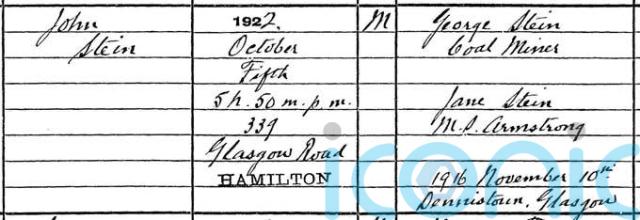 John
Stein
1922.
October
Fifth
5 h. 50 m. p.m.
339
Glasgow Road
HAMILTON
M
George Stein
Coal Miner
Jane Stein
M.S. Armstrong
1916 November 10th
Dennistown, Glasgow
iconic